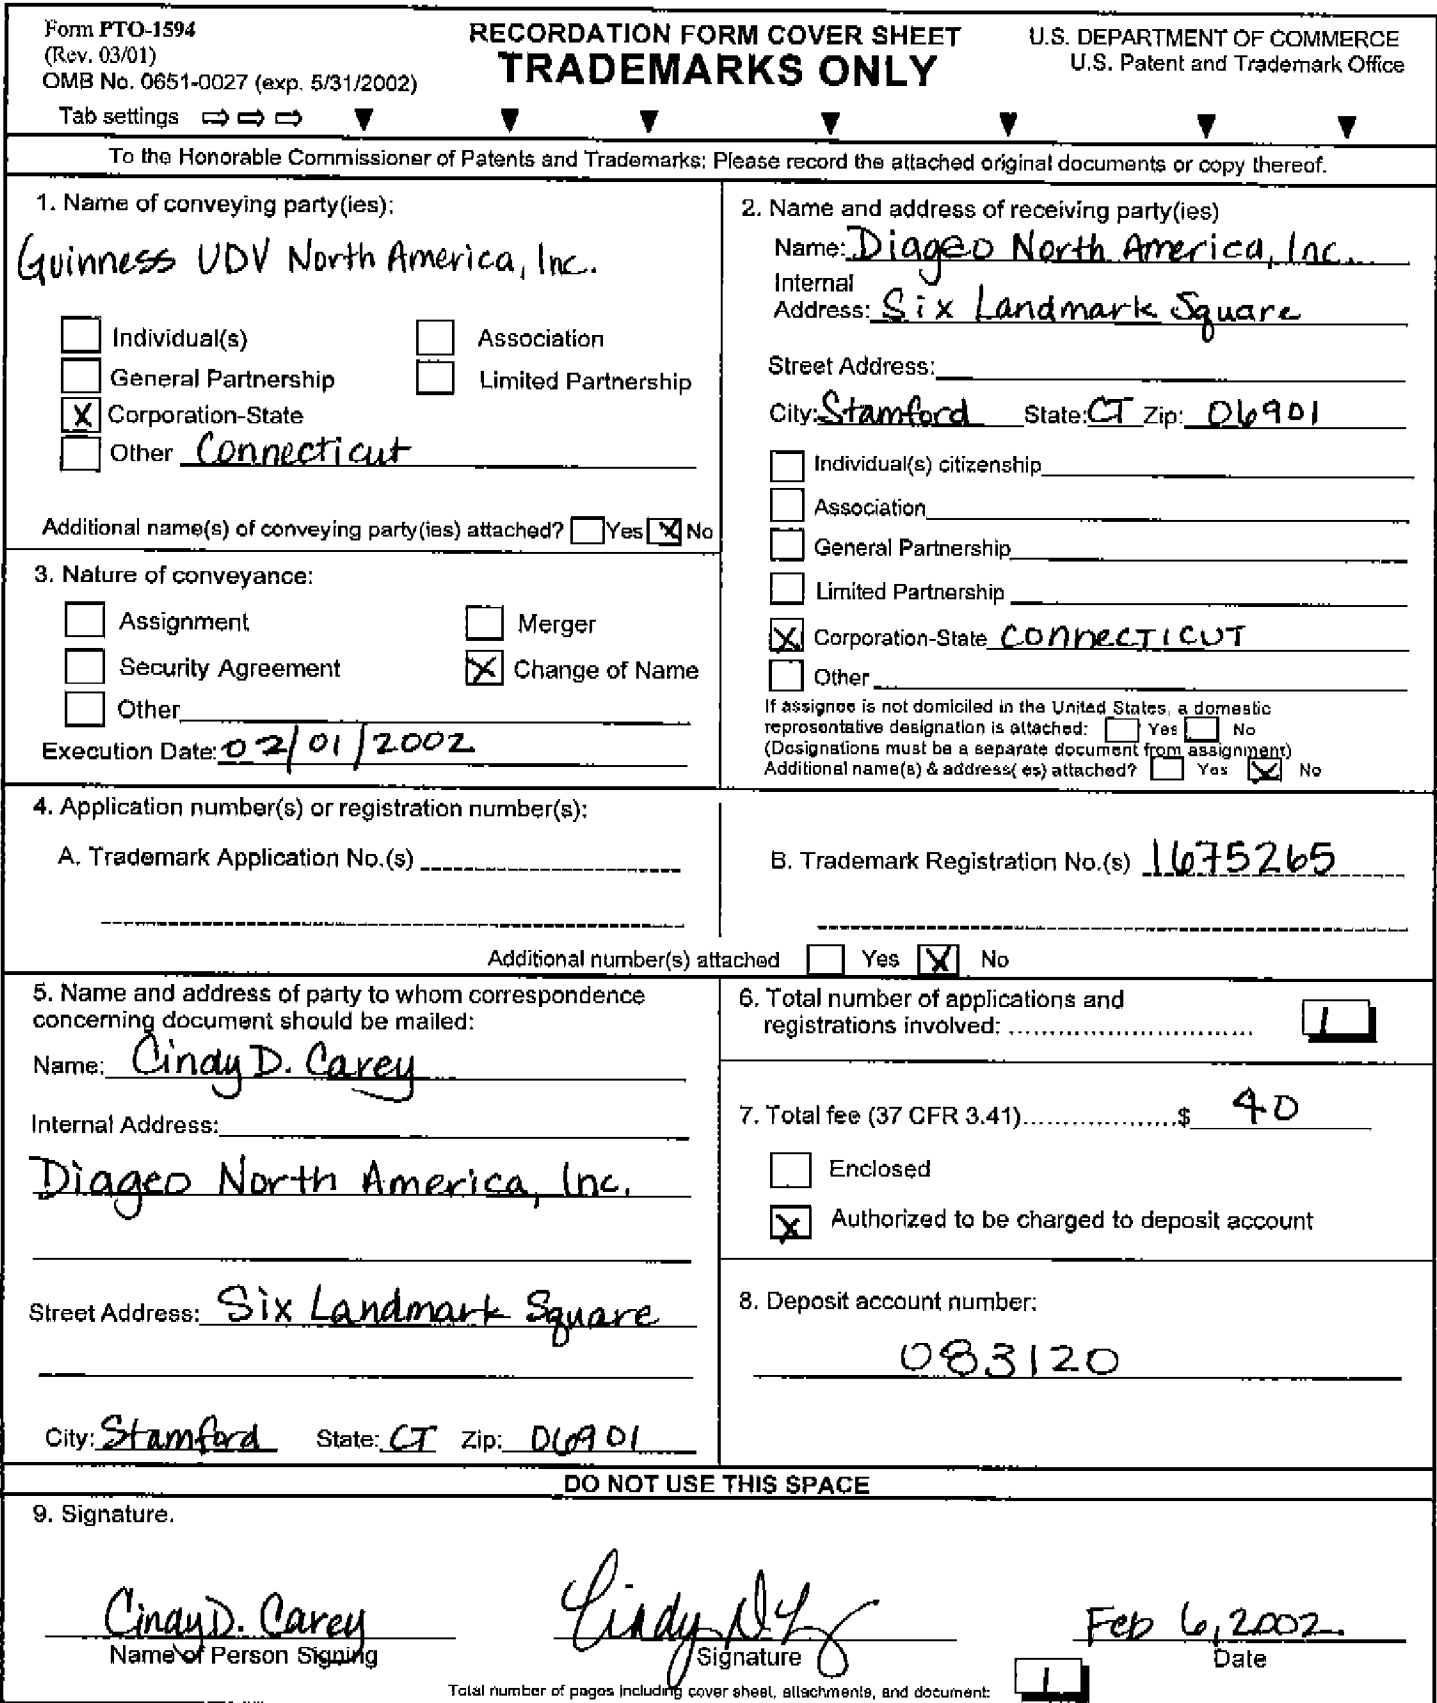 Form PTO-1594
(Rev. 03/01)
OMB No. 0651-0027 (exp. 5/31/2002)
RECORDATION FORM COVER SHEET
TRADEMARKS ONLY
U.S. DEPARTMENT OF COMMERCE
U.S. Patent and Trademark Office
Tab settings ⇨ ⇨ ⇨ ▼ ▼ ▼ ▼ ▼ ▼ ▼
To the Honorable Commissioner of Patents and Trademarks: Please record the attached original documents or copy thereof.
1. Name of conveying party(ies):
Guinness UDV North America, Inc.
Individual(s)
Association
General Partnership
Limited Partnership
X Corporation-State
Other Connecticut
Additional name(s) of conveying party(ies) attached? Yes X No
2. Name and address of receiving party(ies)
Name: Diageo North America, Inc.
Internal
Address: Six Landmark Square
Street Address:
City: Stamford State: CT Zip: 06901
Individual(s) citizenship
Association
General Partnership
Limited Partnership
X Corporation-State CONNECTICUT
Other
If assignee is not domiciled in the United States, a domestic
representative designation is attached: Yes No
(Designations must be a separate document from assignment)
Additional name(s) & address( es) attached? Yes X No
3. Nature of conveyance:
Assignment
Merger
Security Agreement
X Change of Name
Other
Execution Date: 02/01/2002
4. Application number(s) or registration number(s):
A. Trademark Application No.(s)
B. Trademark Registration No.(s) 1675265
Additional number(s) attached Yes X No
5. Name and address of party to whom correspondence
concerning document should be mailed:
Name: Cindy D. Carey
Internal Address:
Diageo North America, Inc.
Street Address: Six Landmark Square
City: Stamford State: CT Zip: 06901
6. Total number of applications and
registrations involved: ............................ 1
7. Total fee (37 CFR 3.41)...................$ 40
Enclosed
X Authorized to be charged to deposit account
8. Deposit account number:
083120
DO NOT USE THIS SPACE
9. Signature.
Cindy D. Carey
Name of Person Signing
Signature
Feb 6, 2002.
Date
Total number of pages including cover sheet, attachments, and document: 1